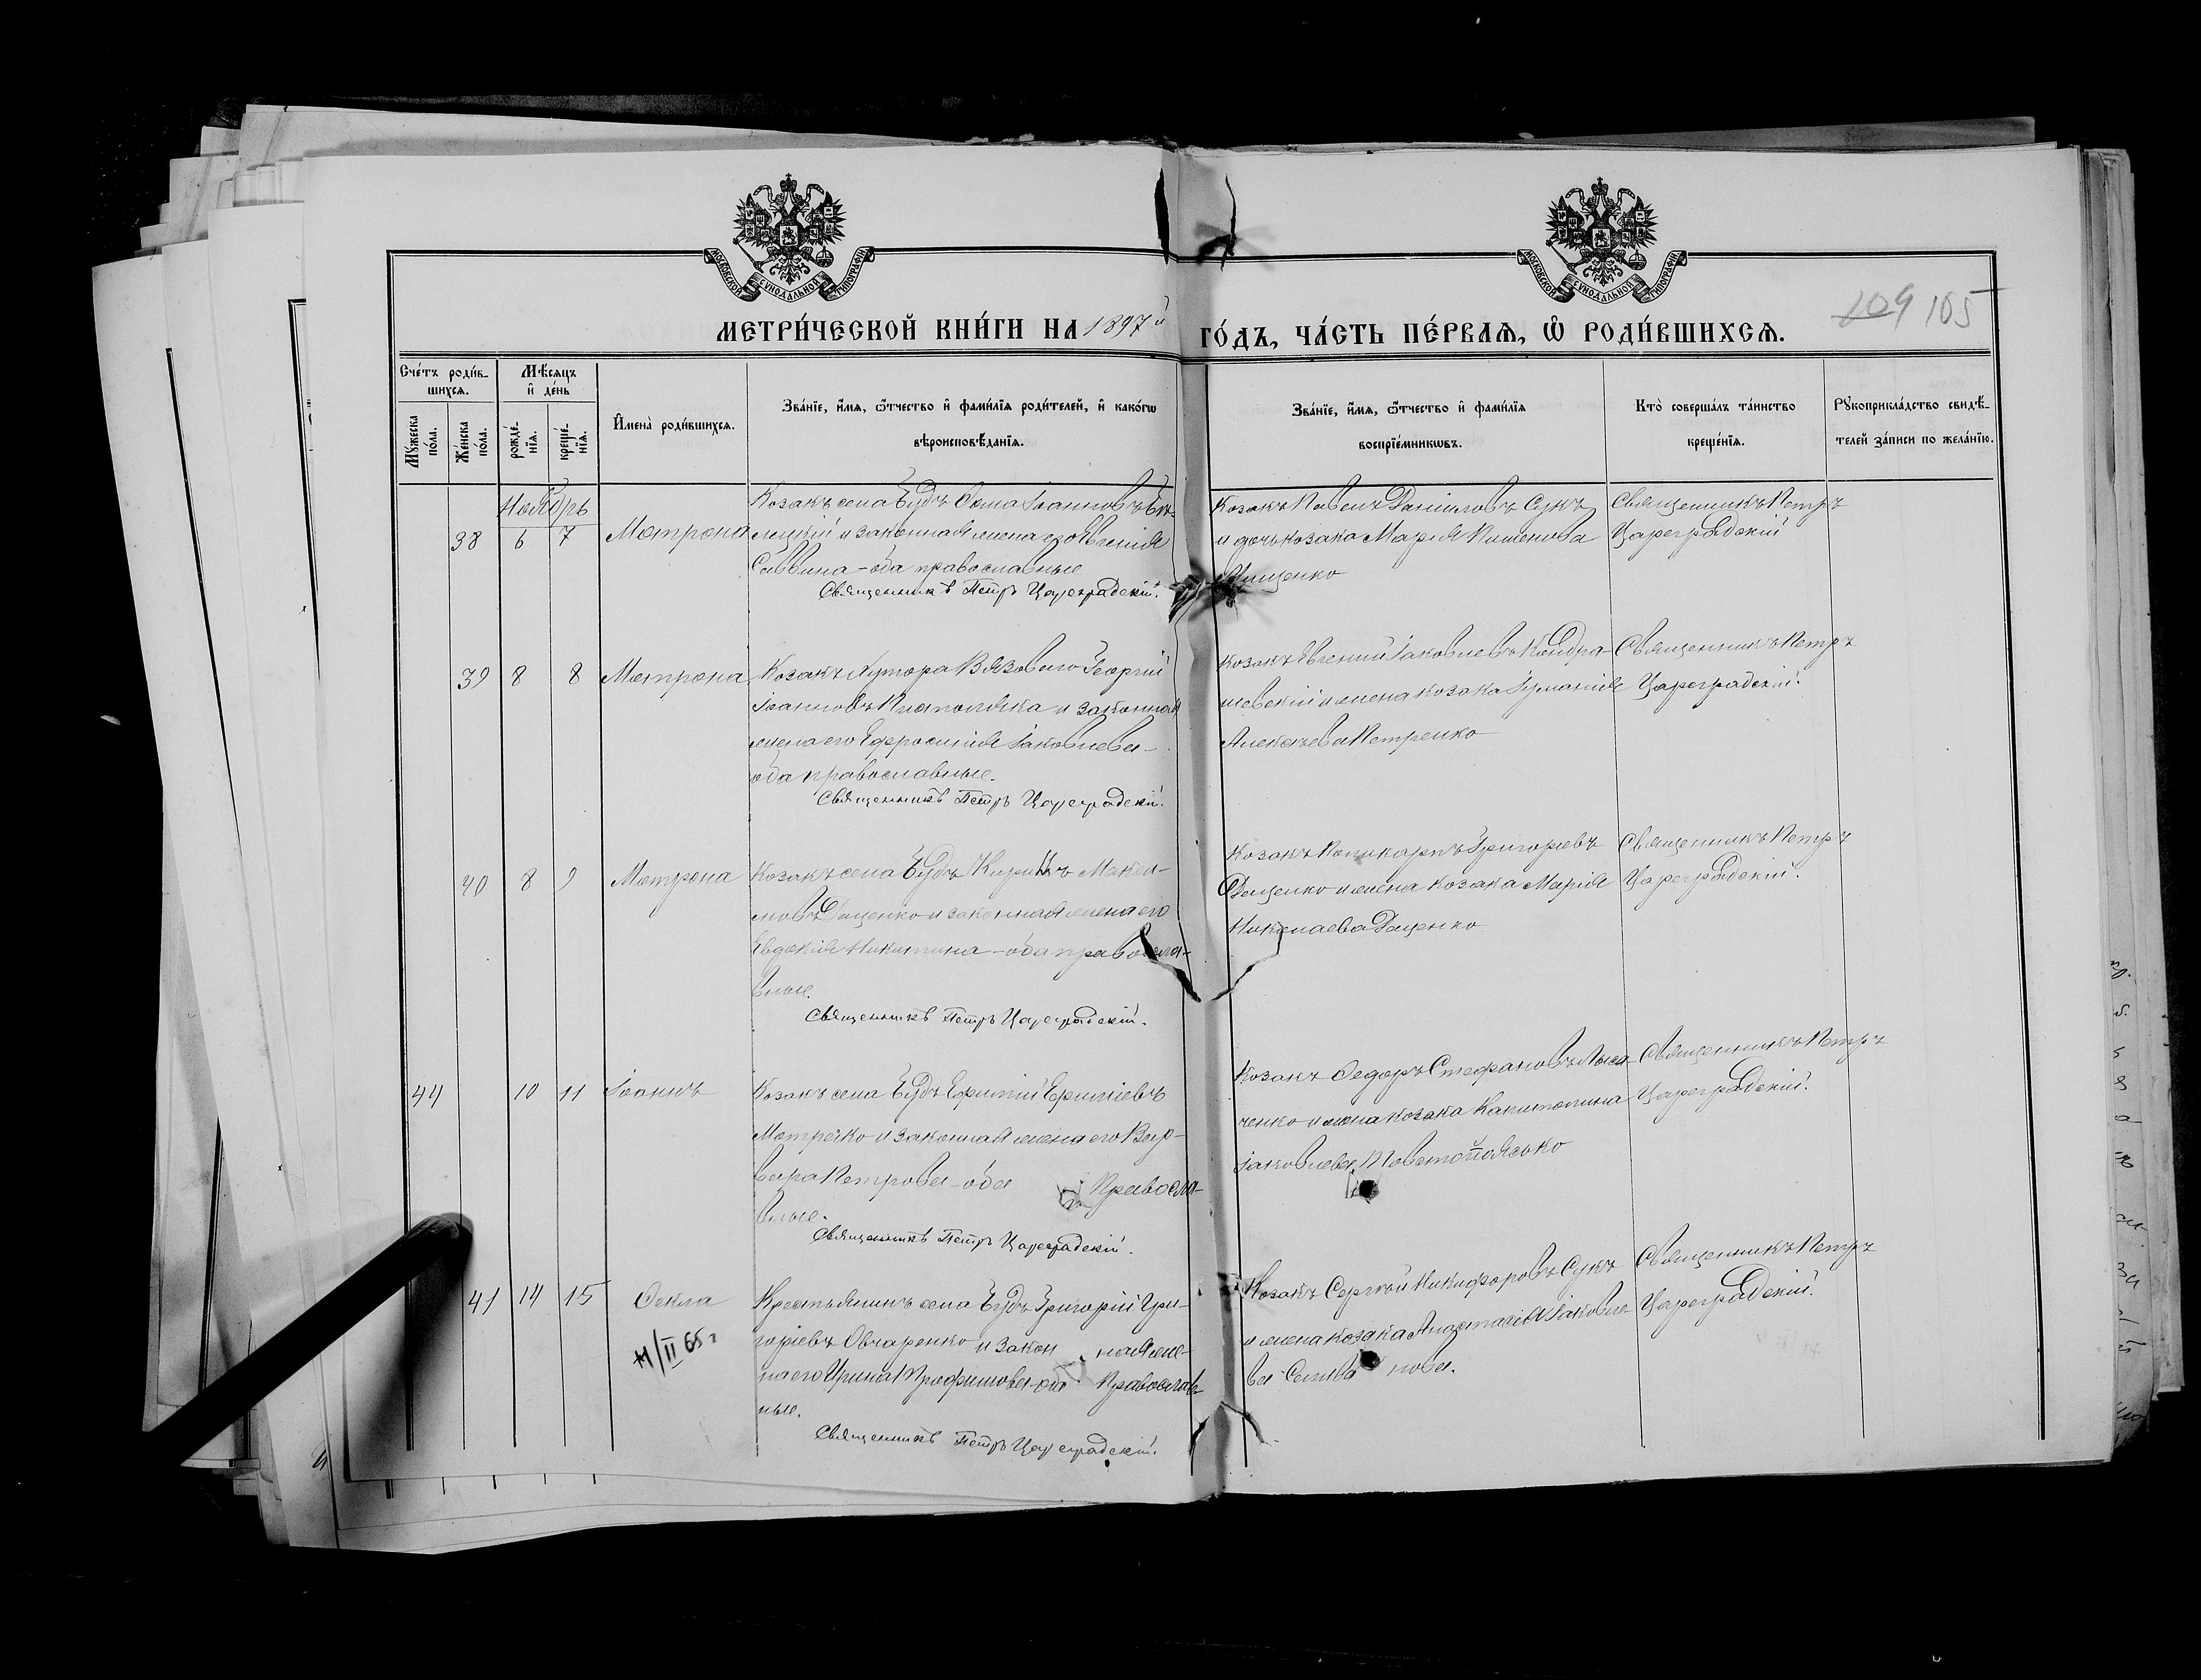 МОСКОВСКОЙ СѴНОДАЛЬНОЙ ТИПОГРАФІИ
МОСКОВСКОЙ СѴНОДАЛЬНОЙ ТИПОГРАФІИ
109 105
МЕТРИ́ЧЕСКОЙ КНИ́ГИ НА 1897й ГО́ДЪ, ЧА́СТЬ ПЕ́РВАѦ, Ѡ҆ РОДИ́ВШИХСѦ.
Сче́тъ роди́в-
шихсѧ.
Мꙋ́жеска по́ла.
Же́нска по́ла.
Мѣ́сяцъ
и҆ де́нь
рожде́-
нїѧ.
креще́-
нїѧ.
И҆мена̀ роди́вшихсѧ.
Зва́нїе, и҆́мѧ, ѻ҆́тчество и҆ фами́лїѧ роди́телей, и҆ како́гѡ
вѣроисповѣ́данїѧ.
Зва́нїе, и҆́мѧ, ѻ҆́тчество и҆ фами́лїѧ
воспрїе́мникѡвъ.
Кто̀ соверша́лъ та́инство
креще́нїѧ.
Рꙋкоприкла́дство свидѣ́-
телей за́писи по жела́нїю.
Ноябрь
38 6 7 Матрона
Козакъ села Будъ Ѳома Іоанновъ
и законная жена его Евгенія
Саввина - оба православные
Священникъ Петръ Цареградскій.
Козакъ Павелъ Даніиловъ Сукъ
и дочь козака Марія
Священникъ Петръ
Цареградскій
39 8 8 Матрона
Козакъ хутора Вязоваго Георгій
Іоанновъ и законная
жена его Ефросинія Іаковлева -
оба православные.
Священникъ Петръ Цареградскій.
Козакъ Евгеній Іаковлевъ Кондра-
шевскій и жена козака Іуліанія
Алексѣева Петренко
Священникъ Петръ
Цареградскій.
40 8 9 Матрона
Козакъ села Будъ Кириллъ Макси-
мовъ Даценко и законная жена его
Евдокія Никитина - оба православ-
вные.
Священникъ Петръ Цареградскій.
Козакъ Поликарпъ Григоріевъ
Даценко и жена козака Марія
Николаева Даценко
Священникъ Петръ
Цареградскій.
44 10 11 Іоаннъ
Козакъ села Будъ Ефимій Ефиміевъ
и законная жена его Вар-
вара Петрова - оба правосла-
вные.
Священникъ Петръ Цареградскій.
Козакъ Ѳедоръ Стефановъ Лыса-
ченко и жена козака Капитолина
Іаковлева
Священникъ Петръ
Цареградскій.
41 14 15 Ѳекла
Крестьянинъ села Будъ Григорій Гри-
горіевъ Овчаренко и закон ная же-
на его Ирина Трофимова - оба Православ-
ные.
Священникъ Петръ Цареградскій.
Козакъ Сергѣй Никифоровъ Сукъ
и жена козака Анастасія Іаковле-
ва Селива нова.
Священникъ Петръ
Цареградскій.
/II 65 г